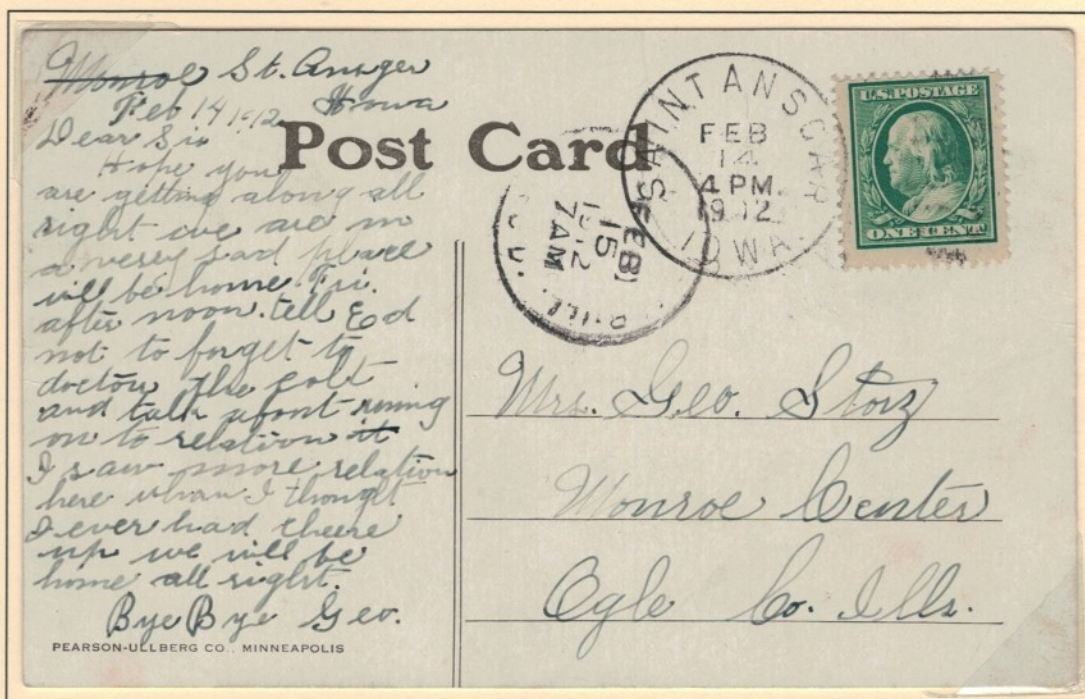 Monroe St. Ansger
Feb 14 1912 Iowa
Dear Sir
Hope you
are getting along all
right we are in
a very sad place
will be home Fri.
after noon. tell Ed
not to forget to
doctor the colt
and talk about runing
on to relation it
I saw more relation
here than I thougt
I ever had cheere
up we will be
home all right.
Bye Bye Geo.
PEARSON-ULLBERG CO., MINNEAPOLIS
Post Card
SAINT ANSGAR
FEB
14
4 PM.
1912
IOWA
FEB
15
1912
7AM
ILL.
U.S. POSTAGE
ONE CENT
Mrs. Geo. Storz
Monroe Center
Ogle Co. Ills.